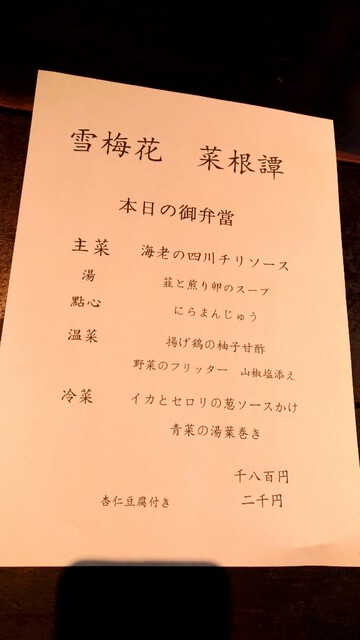 雪梅花 菜根譚
本日の御弁當
主菜 海老の四川チリソース
湯 韮と煎り卵のスープ
點心 にらまんじゅう
温菜 揚げ鶏の柚子甘酢
野菜のフリッター 山椒塩添え
冷菜 イカとセロリの葱ソースかけ
青菜の湯葉巻き
千八百円
杏仁豆腐付き 二千円